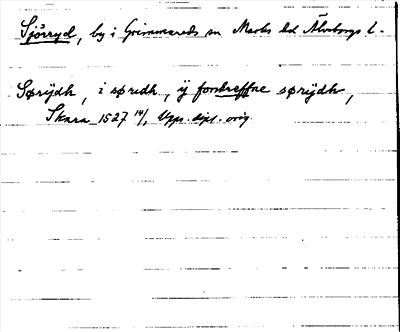 Sjöryd, by i Grimmareds sn Marks hd Älvsborgs l.
Sørijdh, i søredh, ij fordneffne sørijdh,
Skara 1527 14/1, Upps. dipl. orig.